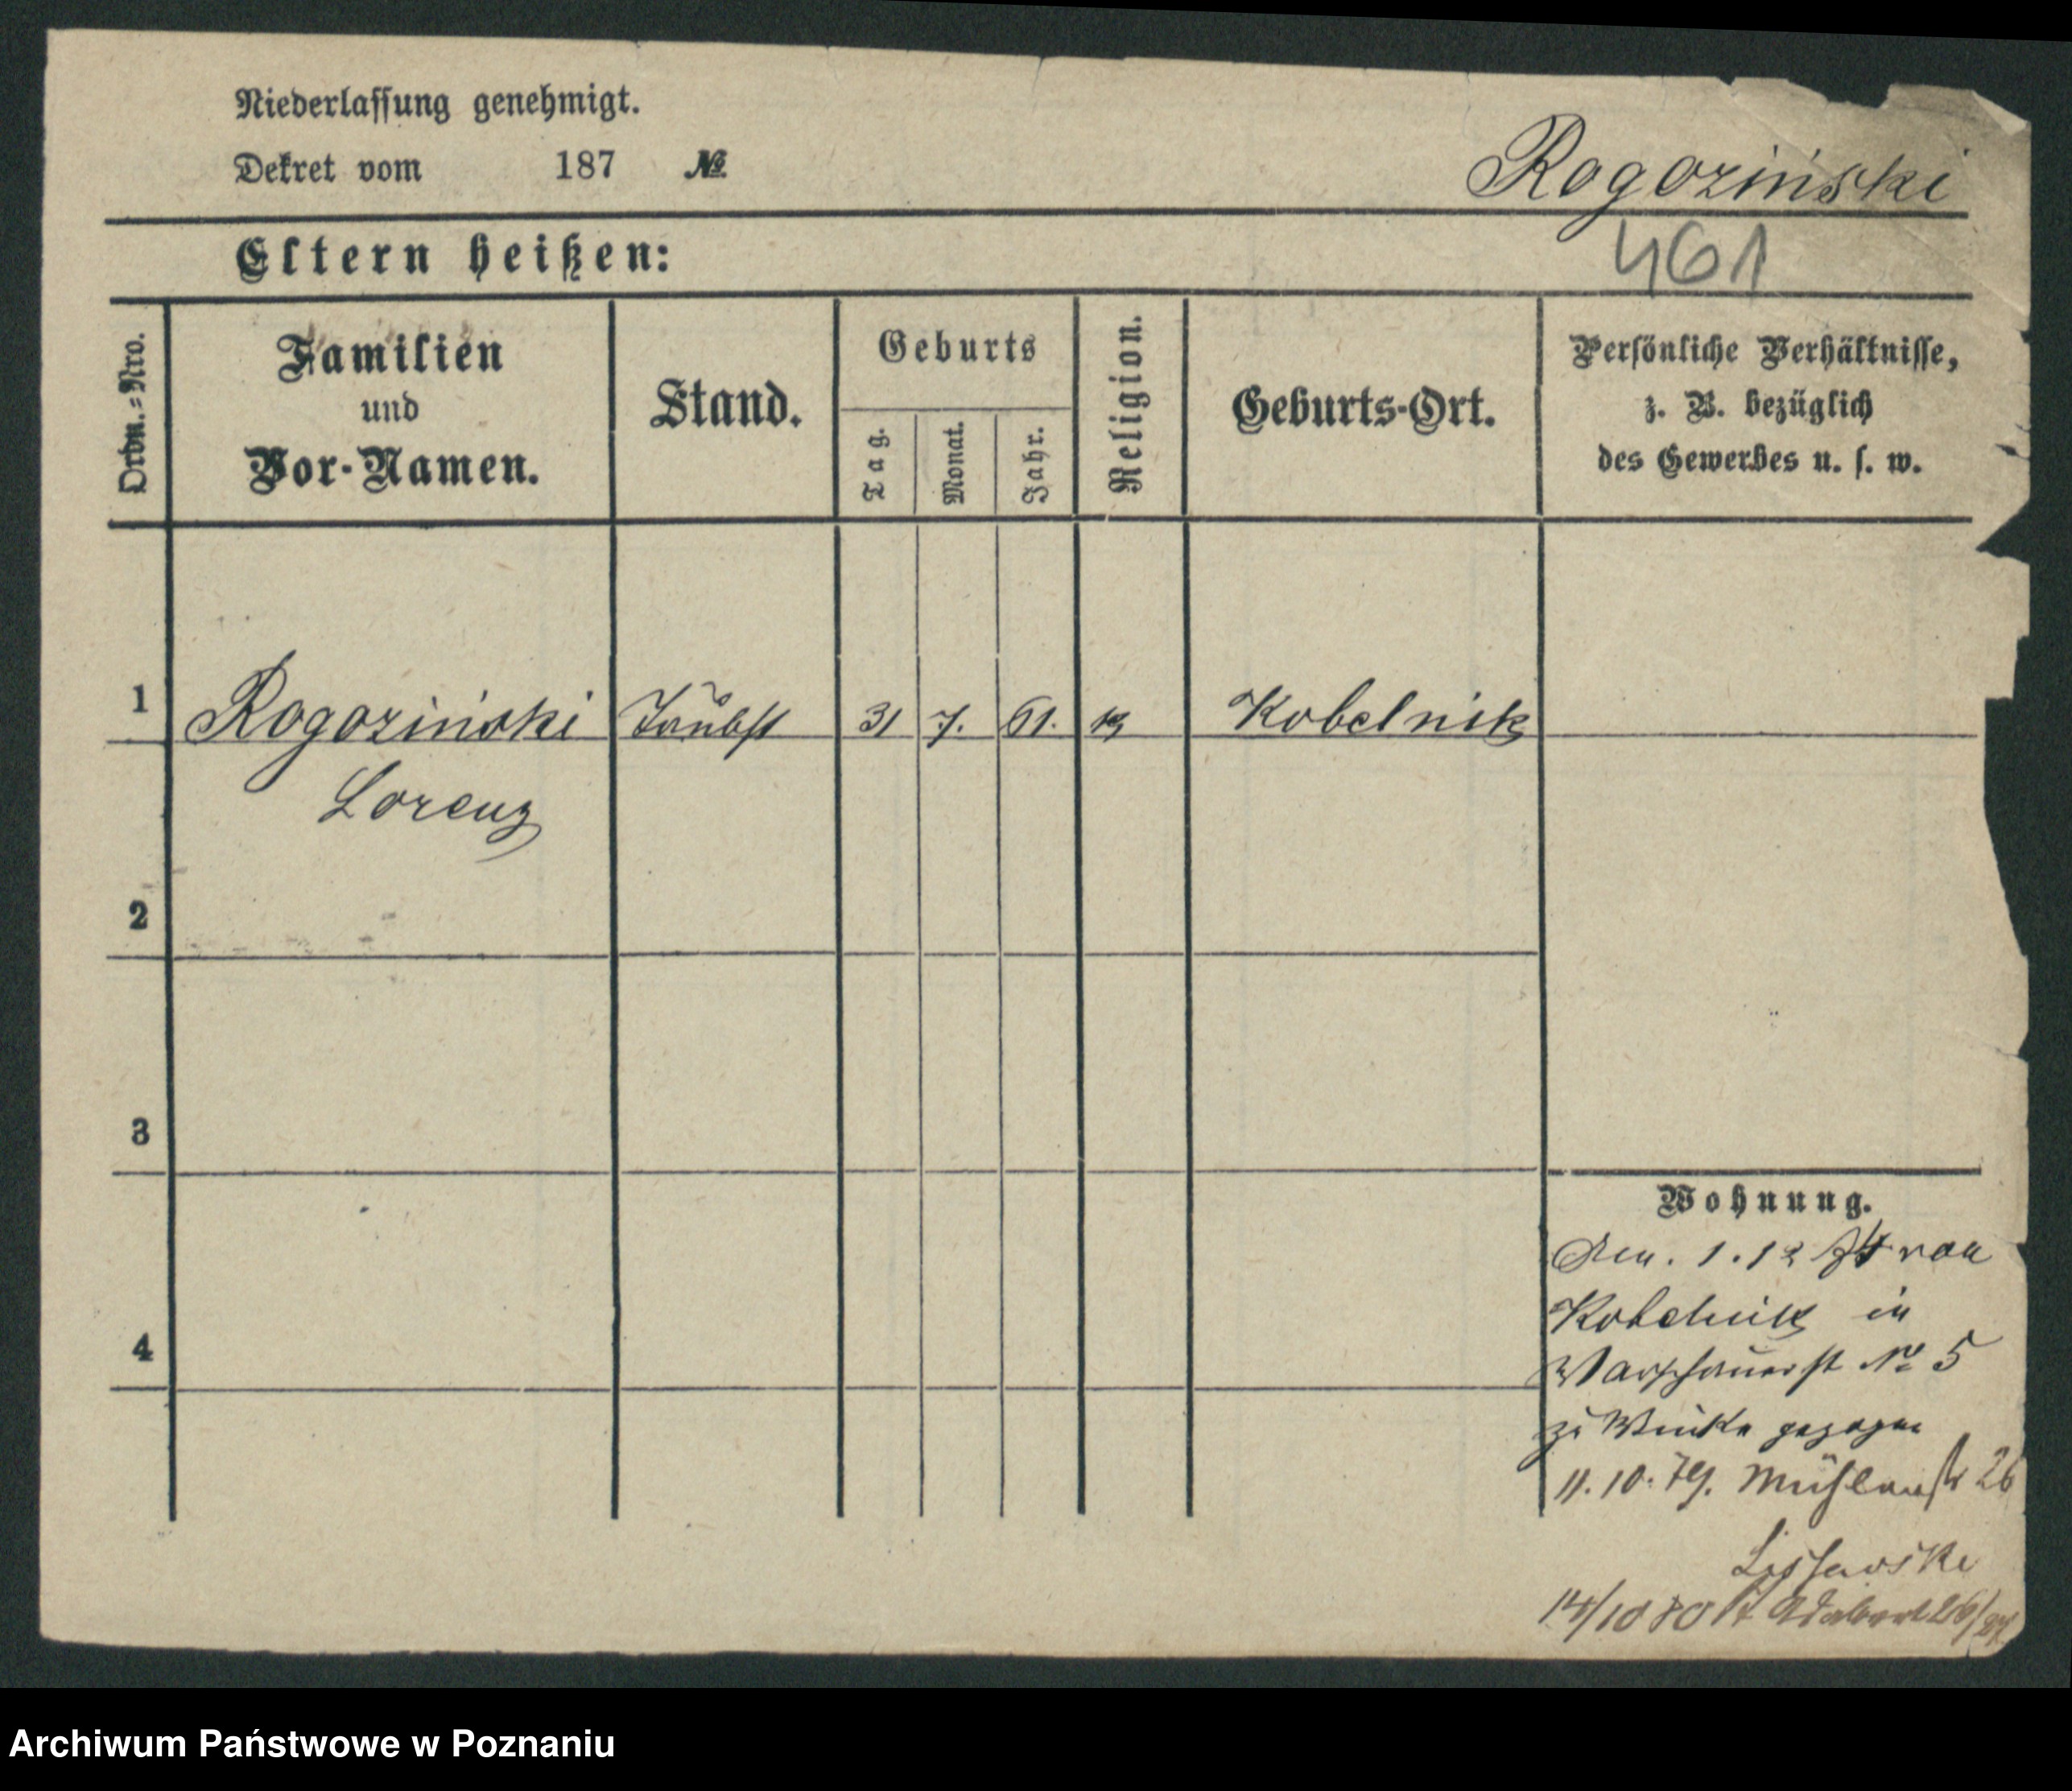 Niederlassung genehmigt.
Dekret vom 187 №
Rogoziński
461
Eltern heißen:
Ordn.-Nro.
Familien
und
Vor-Namen.
Stand.
Geburts
Tag.
Monat.
Jahr.
Religion.
Geburts-Ort.
Persönliche Verhältnisse,
z. B. bezüglich
des Gewerbes u. s. w.
1 Rogoziński 31 7. 61. k Kobelnik
Lorenz
2
3
4
Wohnung.
Den. 1.12 von
Kobelnik in
Warschauerst № 5
zu gezogen
11.10.79. Mühlenstr 26
14/10 80 St Adalbert
Archiwum Państwowe w Poznaniu